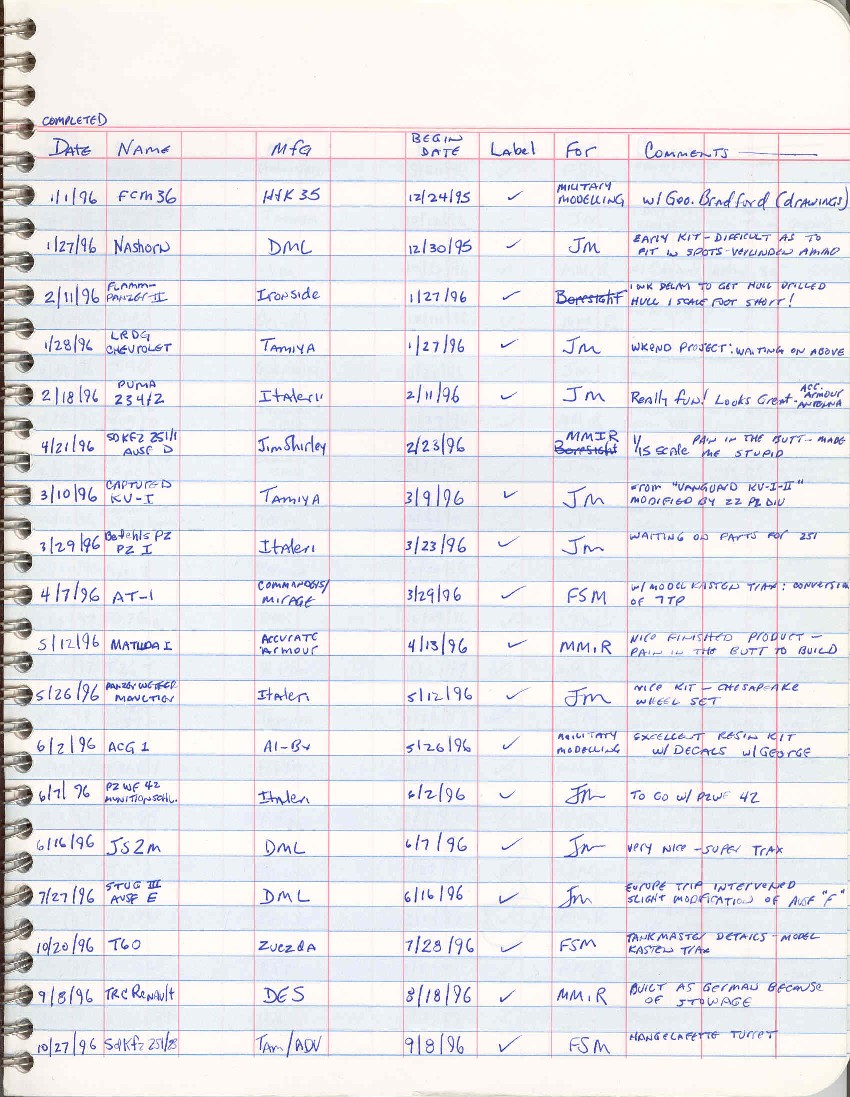 COMPLETED
DATE NAME MFG BEGIN DATE Label FOR COMMENTS
1/1/96 FCM 36 12/24/95 ✓ MILITARY MODELLING w/ Geo. Bradford (drawings)
1/27/96 NASHORN DML 12/30/95 ✓ JM EARLY KIT - DIFFICULT AS TO
FIT IN SPOTS - VERLINDEN AMMO
2/11/96 FLAMM-PANZER II Ironside 1/27/96 ✓ Boresight 1 WK DELAY TO GET HULL DRILLED
HULL 1 SCALE FOOT SHORT!
1/28/96 LRDG CHEVROLET TAMIYA 1/27/96 ✓ JM WKEND PROJECT: WAITING ON ABOVE
2/18/96 PUMA 234/2 Italeri 2/11/96 ✓ JM Really fun! Looks Great - ACC. ARMOUR ANTENNA
4/21/96 SDKFZ 251/1 AUSF D Jim Shirley 2/23/96 MMIR Boresight 1/15 scale PAIN IN THE BUTT - MADE
ME STUPID
3/10/96 CAPTURED KV-I TAMIYA 3/9/96 ✓ JM FROM "VANGUARD KV-I-II"
MODIFIED BY 22 PZ DIV
3/29/96 Befehls PZ PZ I Italeri 3/23/96 ✓ JM WAITING ON PARTS FOR 251
4/7/96 AT-1 COMMANDERS/ MIRAGE 3/29/96 ✓ FSM w/ MODEL KASTEN TRAX: CONVERSION
OF 7TP
5/12/96 MATILDA I ACCURATE ARMOUR 4/13/96 ✓ MMIR NICE FINISHED PRODUCT -
PAIN IN THE BUTT TO BUILD
5/26/96 PANZERWERFER MAULTIER Italeri 5/12/96 ✓ JM NICE KIT - CHESAPEAKE
WHEEL SET
6/2/96 ACG 1 Al-By 5/26/96 ✓ MILITARY MODELLING EXCELLENT RESIN KIT
w/ DECALS w/ GEORGE
6/7/96 PZ WF 42 MUNITIONSCHL. Italeri 6/2/96 ✓ JM TO GO w/ PZWF 42
6/16/96 JS2M DML 6/7/96 ✓ JM VERY NICE - SUPER TRAX
7/27/96 STUG III AUSF E DML 6/16/96 ✓ JM EUROPE TRIP INTERVENED
SLIGHT MODIFICATION OF AUSF "F"
10/20/96 T60 ZVEZDA 7/28/96 ✓ FSM TANKMASTER DETAILS - MODEL
KASTEN TRAX
9/8/96 TRC Renault DES 8/18/96 ✓ MMIR BUILT AS GERMAN BECAUSE
OF STOWAGE
10/27/96 SdKfz 251/23 TAM/ADV 9/8/96 ✓ FSM HANGELAFETTE TURRET